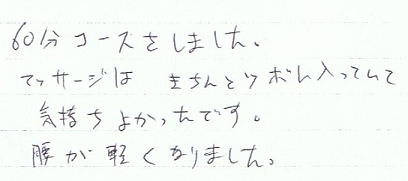 60分コースをしました。
マッサージは きちんとツボに入っていて
気持ちよかったです。
腰が軽くなりました。